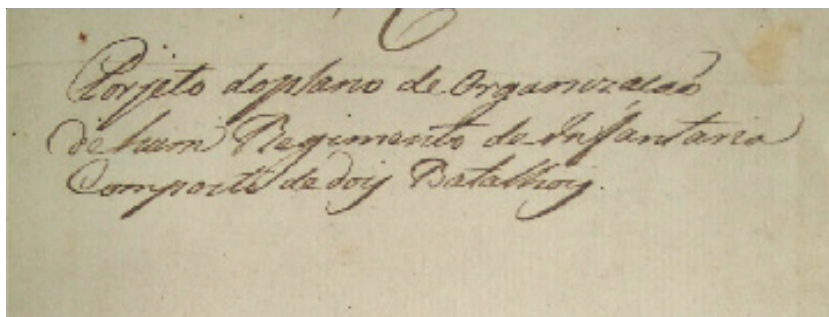 Porjeto doplano de Organizacaõ
de hum Regimento de Infantaria
Composto de doiz Batalhoiz.